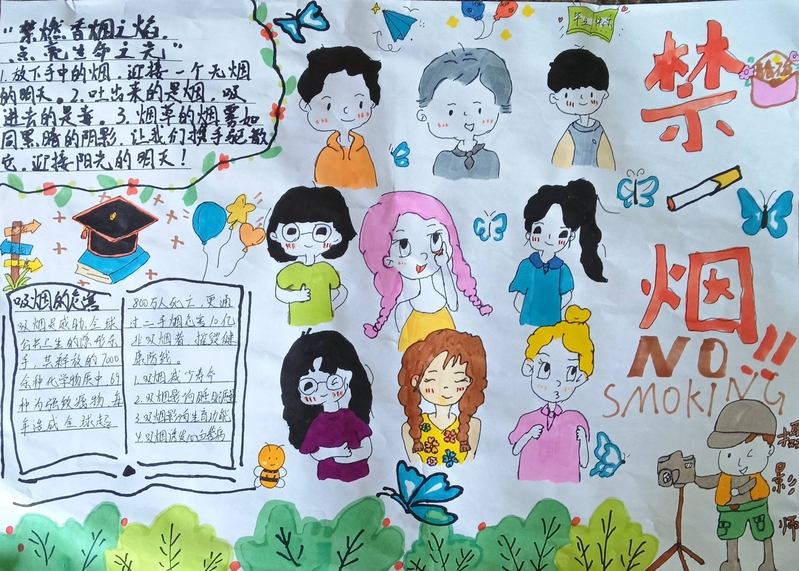 “禁燃香烟之焰
点亮生命之光”
1.放下手中的烟,迎接一个无烟
的明天。2.吐出来的是烟,吸
进去的是毒。3.烟草的烟雾如
同黑暗的阴影,让我们携手驱散
它,迎接阳光的明天!
吸烟的危害
吸烟是威胁全球
公共卫生的隐形杀
手,其释放的7000
余种化学物质中69
种为强致癌物,每
年造成全球超
800万人死亡,更通
过二手烟危害10亿
非吸烟者,摧毁健
康防线。
1.吸烟减少寿命
2.吸烟影响
3.吸烟影响生育功能
4.吸烟诱发心血管病
禁
烟
!!
NO
SMOKING
摄
影
师